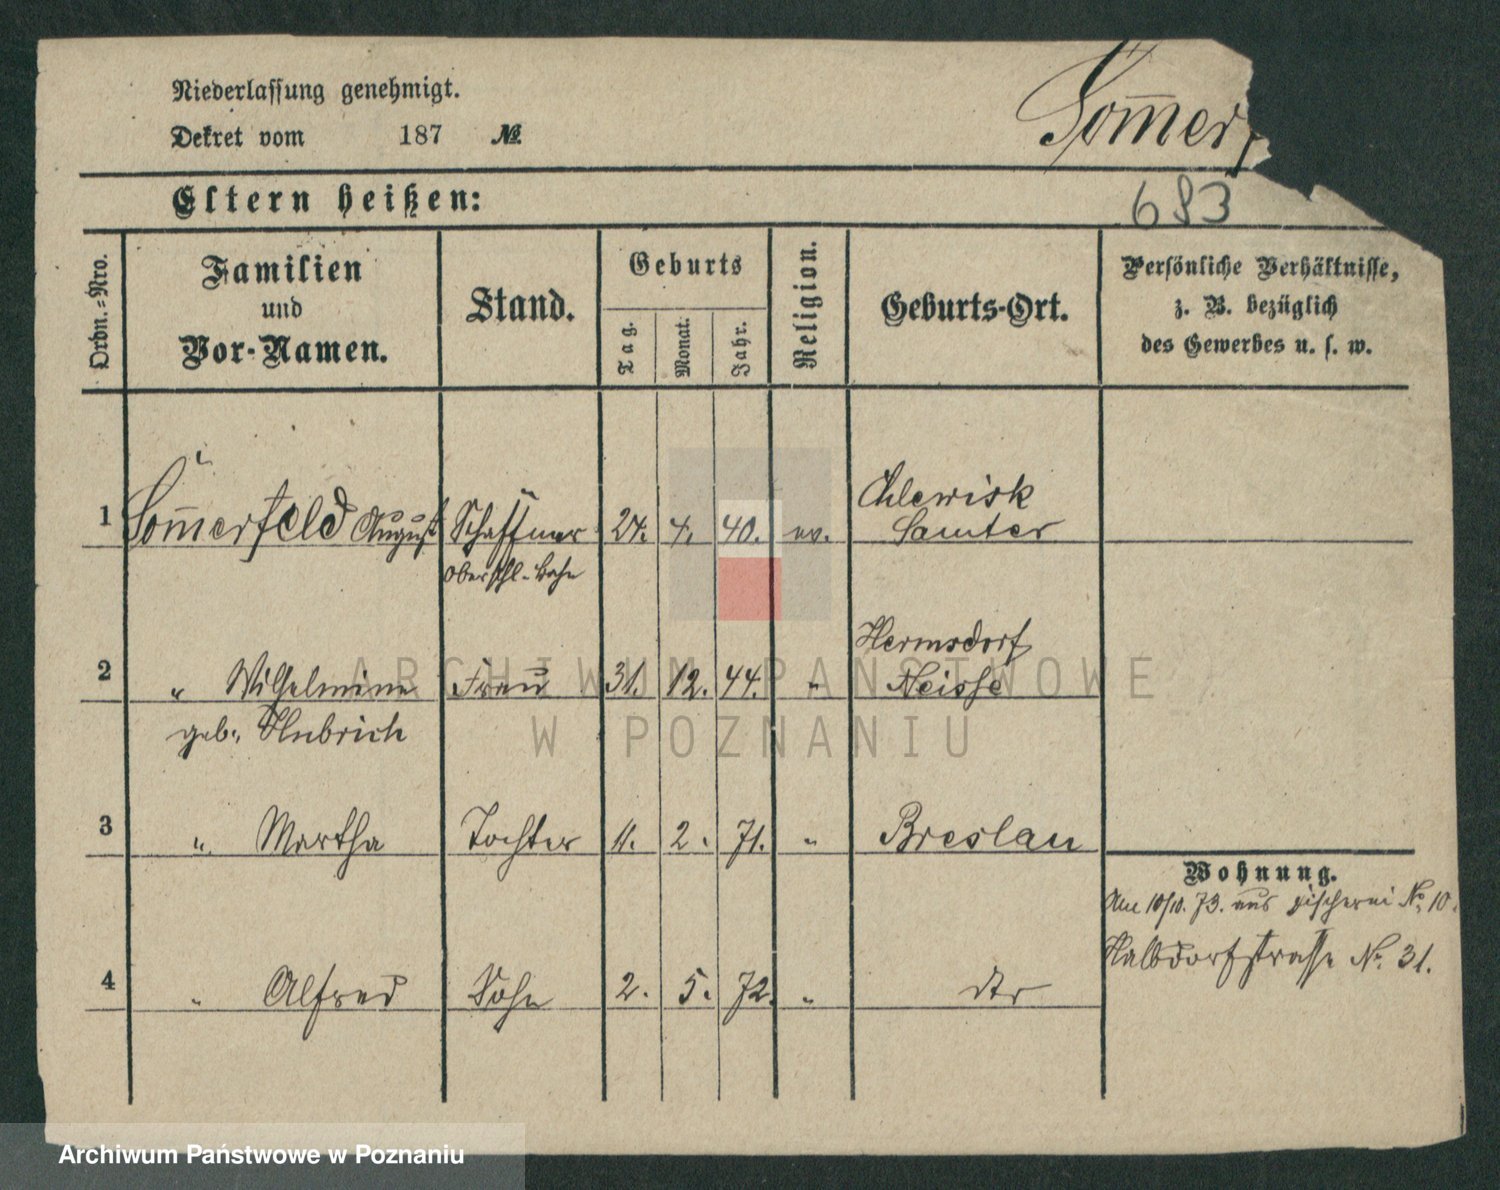 Niederlassung genehmigt.
Dekret vom 187 №
Som̅erf
Eltern heißen:
693
Ordn.-Nro.
Familien
und
Vor-Namen.
Stand.
Geburts
Tag.
Monat.
Jahr.
Religion.
Geburts-Ort.
Persönliche Verhältnisse,
z. B. bezüglich
des Gewerbes u. s. w.
1 Som̅erfeld August Schaffner 24. 4. 40. ev. Chlewisk
Samter
Oberschl-Bahn
2 " Wilhelmine Frau 31. 12. 44. " Hermsdorf
Neisse
geb.
3 " Martha Tochter 11. 2. 71. " Breslau
4 " Alfred Sohn 2. 5. 72. " dto
Wohnung.
Am 10/10. 73. aus Fischerei No. 10.
Halbdorfstrasse No. 31.
ARCHIWUM PAŃSTWOWE
W POZNANIU
Archiwum Państwowe w Poznaniu